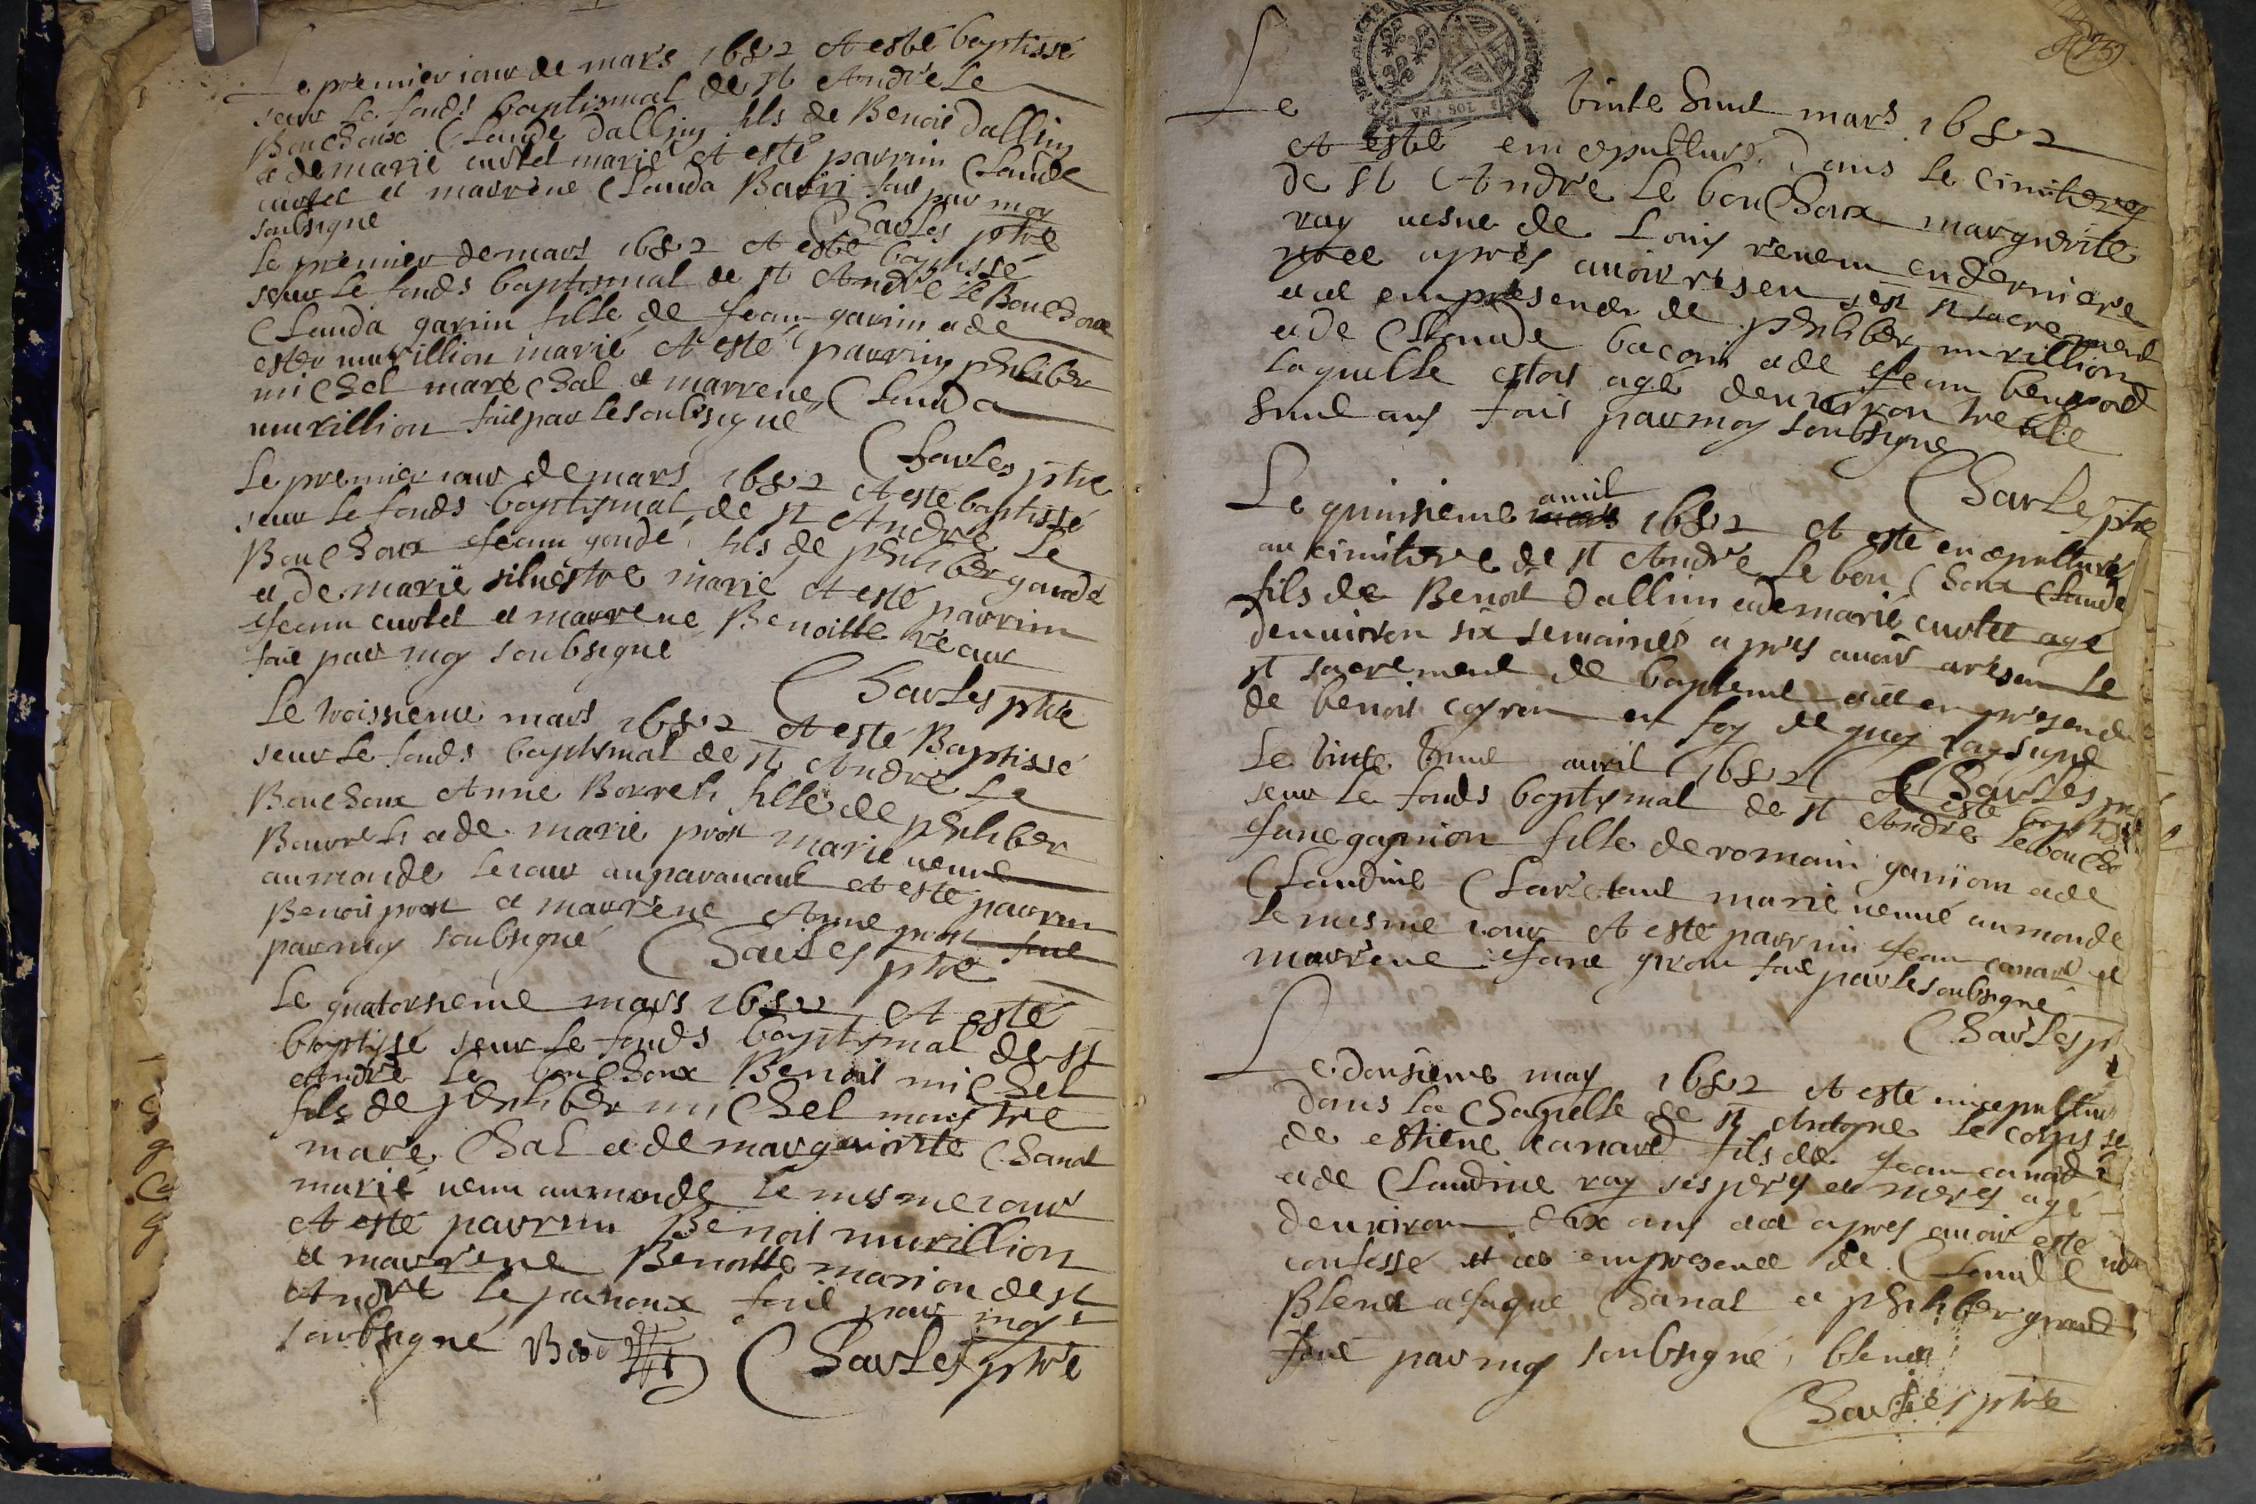 Le premier iour de mars 1682 A esté baptissé
seur Le fonds baptismal de st André Le
Bouchoux Claude Dallin fils de Benoit Dallin
et de marie curtet marié A esté parrin Claude
curtet et marrene Clauda fait par moy
soubsigné Charles ptre
Le premier de mars 1682 A esté baptissé
seur Le fonds baptismal de st André Le Bouchoux
Clauda garrin fille de Jean garrin et de
ester murillion marié A esté parrin philiber
michel maréchal et marrene Clauda
murillion fait par Le soubsigné
Charles ptre
Le premier iour de mars 1682 A esté baptissé
seur Le fonds baptismal de st André Le
Bouchoux Jean goudé fils de philiber goudé
et de marie silvestre marié A esté parrin
Jean curtet et marrene Benoitte
fait par moy soubsigné
Charles ptre
Le troissieme mars 1682 A esté Baptissé
seur Le fonds baptismal de st André Le
Bouchoux Anne Borrets fille de philiber
Bourrets et de marie prost marié venue
au monde Le iour auparavant A esté parrin
Benoit prost et marrene Anne prost fait
par moy soubsigné Charles ptre
Le quatorsieme mars 1682 A esté
baptissé seur Le fonds baptismal de st
André Le bouchoux Benoit michel
fils de philiber michel maistre
maréchal et de marguerite Chanal
marié venu au monde Le mesme iour
A esté parrin Benoit murillion
et marrene Benoitte marion de st
André Le panoux fait par moy
soubsigné Charles ptre
Le vinte huit mars 1682
A esté en cepulturé dans Le cimitere
de st André Le bouchoux marguerite
ray vesve de Louis en derniere
apres avoir reseu Les st sacrement
et ce en presence de philiber murillion
et de Claude bacon et de Jean
Laquelle estoit agé denviron trente
huit ans fait par moy soubsigne
Charles ptre
Le quinsieme avril 1682 A esté en cepulturé
au cimitere de st André Le bouchoux Claude
fils de Benoit Dallin et de marie curtet agé
denviron six semaines apres avoir reseu Le
st sacrement de bapteme et ce en presence
de benoit en foy de quoy iay signé
Charles
Le vinte huit avril 1682 A esté
seur Le fonds baptismal de st André Le bouchoux
Jane fille de romain et de
Claudine marié venue au monde
Le mesme iour A esté parrin Jean canard et
marrene Jane fait par Le soubsigné
Charles
Le dousieme may 1682 A esté
dans La Chapelle de st Antoyne Le corps
de estiene canard fils de Jean canard
et de Claudine ray ses peres et meres agé
denviron dix ans et ce apres avoir esté
confessé et ce en presence de Claude
Blend et Jaque Chanal et philiber grand
fait par moy soubsigné
Charles ptre